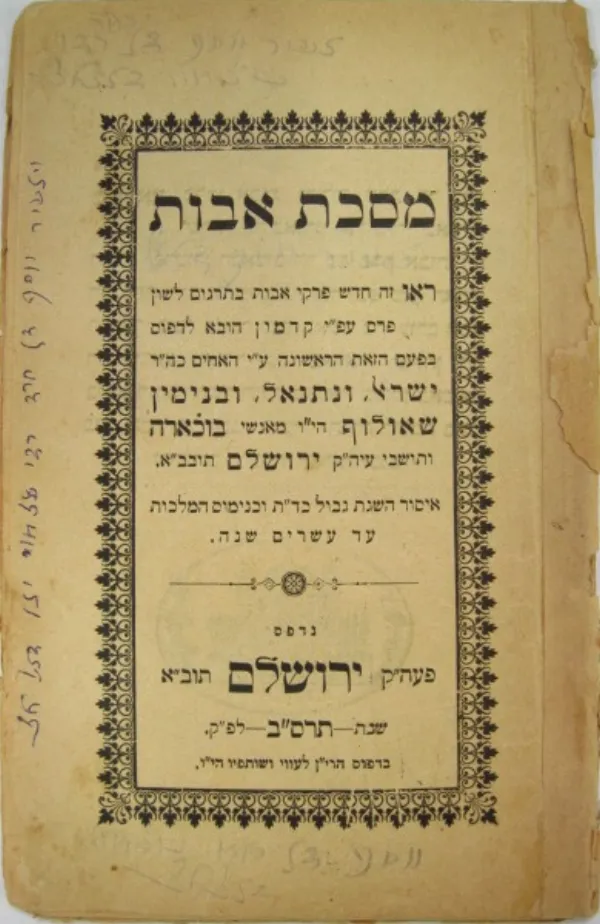 מסכת אבות
ראו זה חדש פרקי אבות בתרגום לשון
פרס עפ״י קדמון הובא לדפוס
בפעם הזאת הראשונה ע״י האחים כה״ר
ישראל, ונתנאל, ובנימין
שאולוף הי״ו מאנשי בוכארה
ותושבי עיה״ק ירושלם תובב״א.
איסור השגת גבול כד״ת וכנימוס המלכות
עד עשרים שנה.
נדפס
פעה״ק ירושלם תוב״א
שנת—תרס״ב—לפ״ק.
בדפוס הרי״ן לעווי ושותפיו הי״ו.